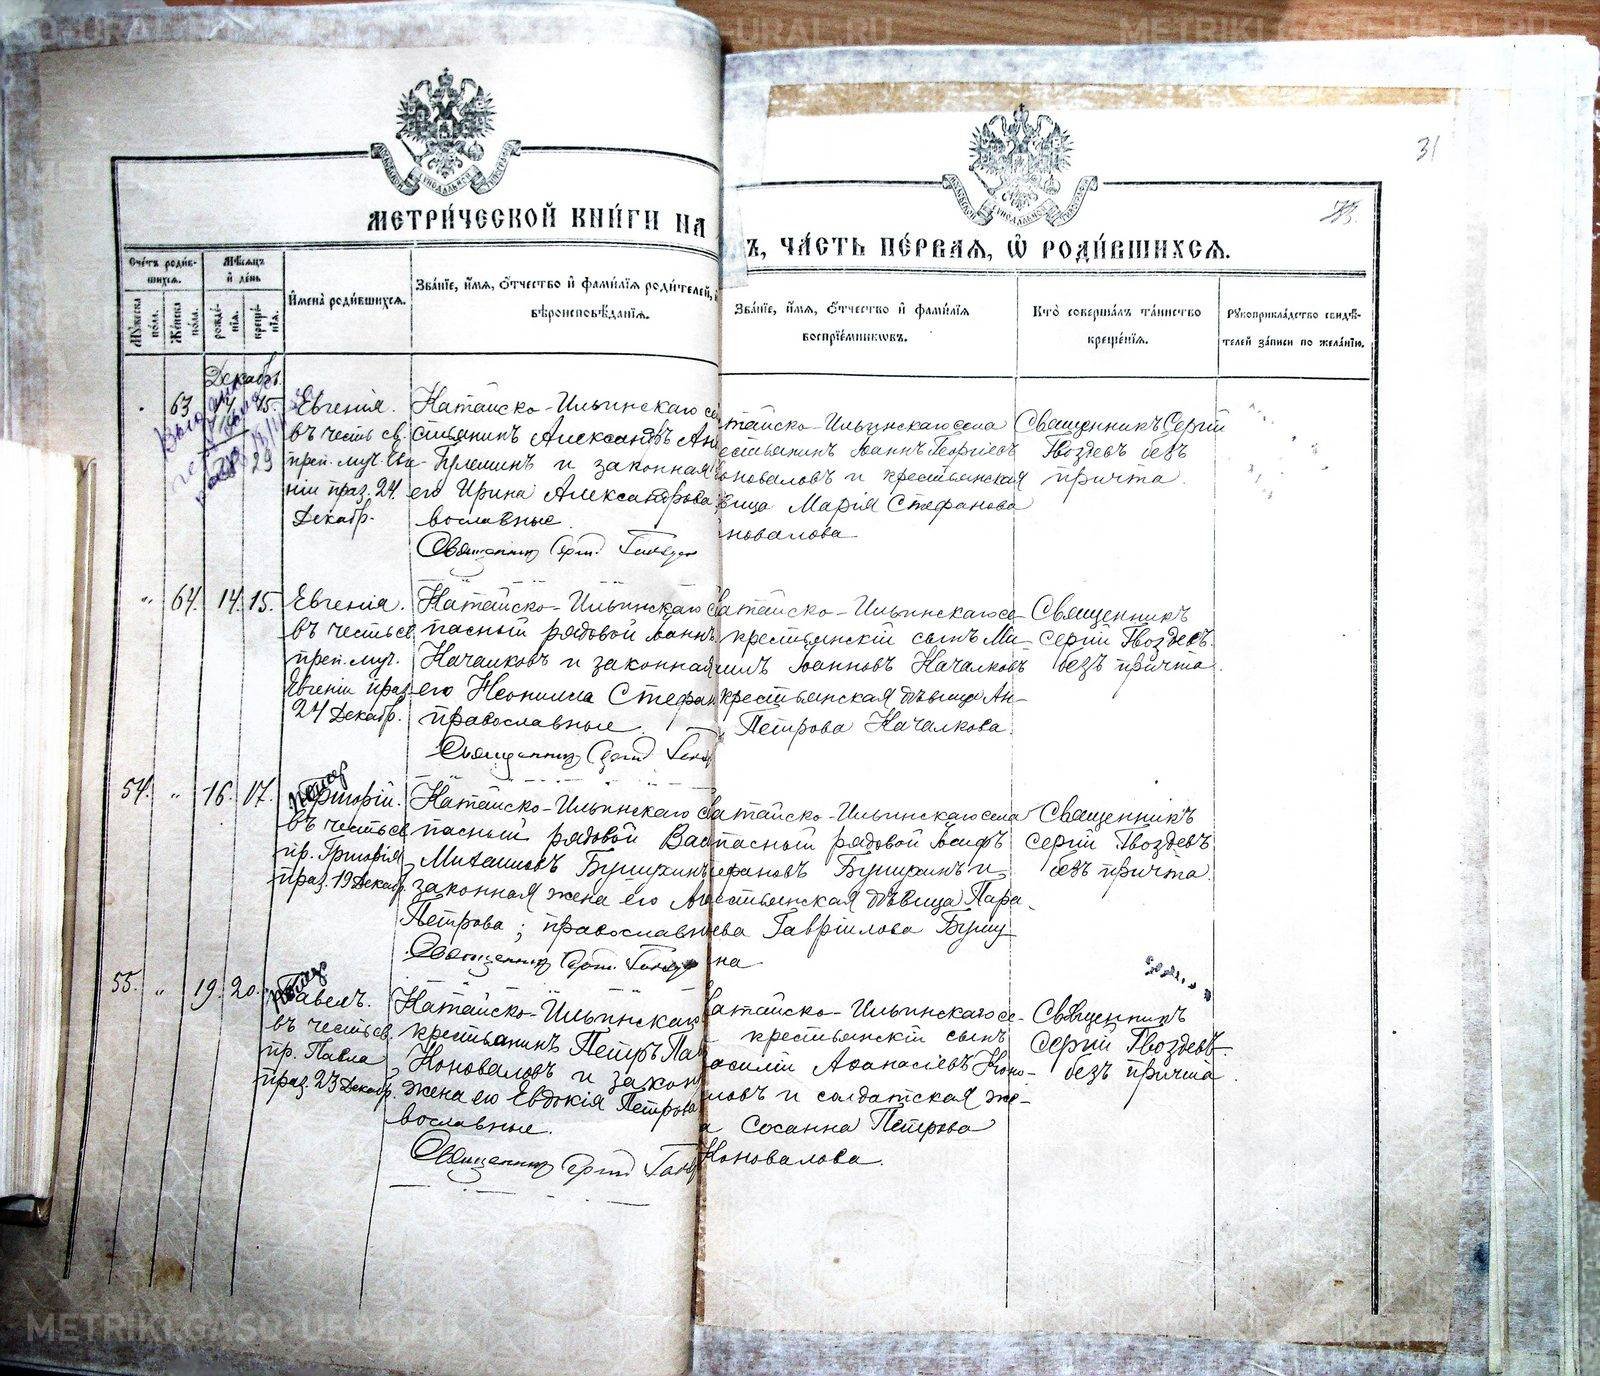 METRIKI.GASO-URAL.RU
31
МЕТРИ́ЧЕСКОЙ КНИ́ГИ НА
Ъ, ЧА́СТЬ ПЕ́РВАЯ, Ѡ҆ РОДИ́ВШИХСЯ.
Сче́тъ роди́в-
шихся.
Мѣ́сяцъ
и҆ день
Му́жеска
по́ла.
Же́нска
по́ла.
рожде́-
нія.
креще́-
нія.
И҆мена̀ роди́вшихся.
Зва́ніе, и҆́мя, ѻ҆́тчество и҆ фами́лія роди́телей,
вѣроисповѣ́данія.
Зва́ніе, и҆́мя, ѻ҆́тчество и҆ фами́лія
воспріе́мниковъ.
Кто̀ соверша́лъ та́инство
креще́нія.
Рукоприкла́дство свидѣ́-
телей за́писи по жела́нію.
Декабр.
63 14 15.
29
Евгенія.
въ честь св.
преп. муч. Евге-
ніи праз. 24.
Декабр.
Катайско-Ильинскаго
стьянинъ Александръ
и законная
его Ирина Александрова
вославные.
Священник Сергий Гвоздев
тайско-Ильинскаго села
естьянинъ Іоаннъ Георгіевъ
оноваловъ и крестьянская
вица Марія Стефанова
новалова
Священникъ Сергій
Гвоздевъ безъ
причта.
" 64. 14. 15.
Евгенія.
въ честь св
преп. муч.
Евгеніи праз.
24 Декабр.
Катайско-Ильинскаго
пасный рядовой Іоаннъ
Качалковъ и законная
его Неонилла Стефан
православные.
Священник Сергий
атайско-Ильинскаго се-
крестьянскій сынъ Ми-
илъ Іоанновъ Качалковъ
крестьянская дѣвица Ан-
Петрова Качалкова.
Священникъ
Сергій Гвоздевъ
безъ причта.
54. " 16. 17.
Григорій.
въ честь св
пр. Григорія
праз. 19 Декабр.
Катайско-Ильинскаго
пасный рядовой Вас
Михаиловъ Бушухинъ
законная жена его
Петрова; православн
Священник Сергий Гвоздев
атайско-Ильинскаго села
пасный рядовой Іосифъ
ефановъ Бушухинъ и
естьянская дѣвица Пара-
ева Гавріилова Бушу
на
Священникъ
Сергій Гвоздевъ
безъ причта.
55. " 19. 20.
Павелъ.
въ честь св.
пр. Павла
праз. 23 Декабр.
Катайско-Ильинскаго
крестьянинъ Петръ Па
Коноваловъ и закон
жена его Евдокія Петрова
вославные.
Священник Сергий Гвоз
атайско-Ильинскаго се-
крестьянскій сынъ
асилій Аѳанасіевъ Коно-
ловъ и солдатская же-
а Сосанна Петрова
Коновалова.
Священникъ
Сергій Гвоздевъ
безъ причта.
METRIKI.GASO-URAL.RU